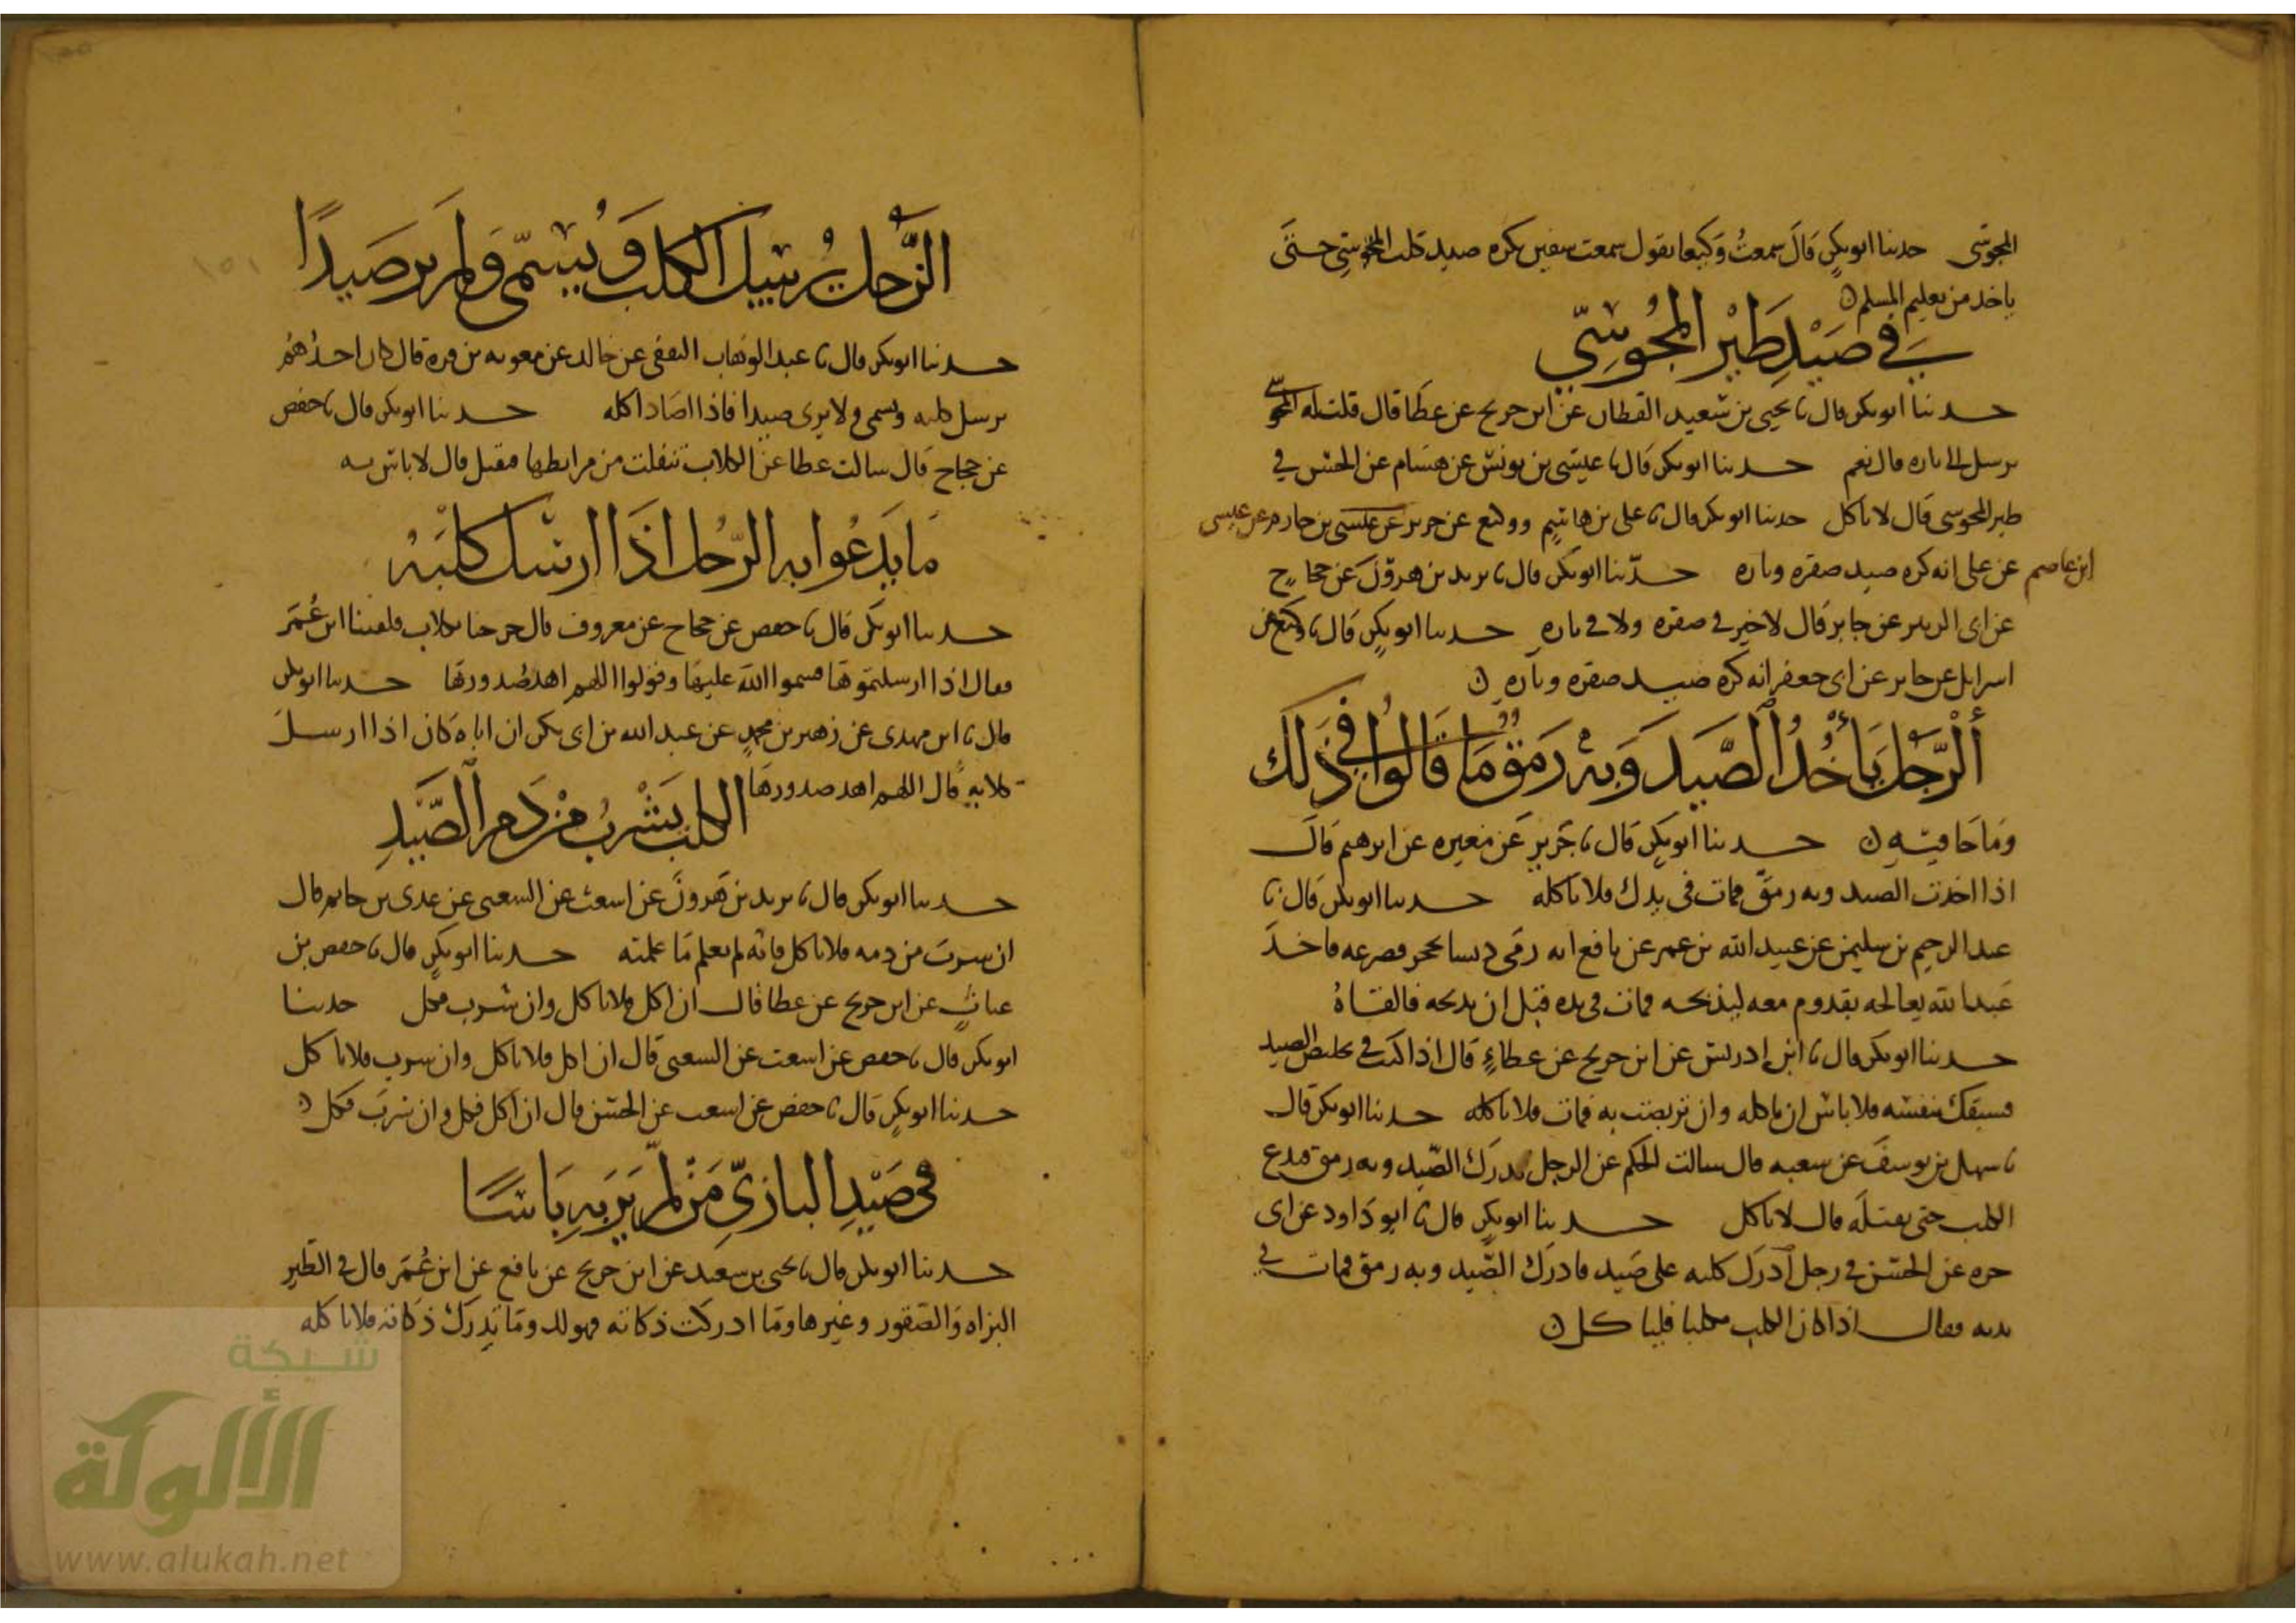 المجوسى حدثنا ابو بكر قال سمعت وكيعا يقول سمعت سفين يكره صيد كلب المجوسي حتى
ياخذ من تعليم المسلم
في صيد طير المجوسي
حدثنا ابو بكر قال نا يحيى بن سعيد القطان عن ابن جريج عن عطا قال قلت له المجوسي
يرسل بازه قال نعم حدثنا ابو بكر قال نا عيسى بن يونس عن هشام عن الحسن في
طير المجوسى قال لا تاكل حدثنا ابو بكر قال نا على بن هاشم ووكيع عن جرير عن عيسى
ابن عاصم عن على انه كره صيد صقره وبازه حدثنا ابو بكر قال نا يزيد بن هرون عن حجاج
عن ابى الزبير عن جابر قال لا خير في صقره ولا في بازه حدثنا ابو بكر قال نا وكيع عن
اسرايل عن جابر عن ابى جعفر انه كره صيد صقره وبازه
الرجل ياخذ الصيد وبه رمق ما قالوا في ذلك
وما جا فيه حدثنا ابو بكر قال نا جرير عن مغيره عن ابرهيم قال
اذا اخذت الصيد وبه رمق فمات فى يدك فلا تاكله حدثنا ابو بكر قال نا
عبد الرحيم بن سليمن عن عبيد الله بن عمر عن نافع انه رمى دبسا بحجر فصرعه فاخذ
عبد الله يعالجه بقدوم معه ليذبحه فمات فى يده قبل ان يذبحه فالقاه
حدثنا ابو بكر قال نا ابن ادريس عن ابن جريج عن عطاء قال اذا كنت في تخليص الصيد
فسبقك بنفسه فلا باس ان تاكله وان تربصت به فمات فلا تاكله حدثنا ابو بكر قال
نا سهل بن يوسف عن شعبه قال سالت الحكم عن الرجل يدرك الصيد وبه رمق فيدع
الكلب حتى يقتله قال لا تاكل حدثنا ابو بكر قال نا ابو داود عن ابى
حره عن الحسن في رجل ادرك كلبه على صيد فادرك الصيد وبه رمق فمات في
يديه فقال اذا كان الكلب مكلبا فلياكل
الرجل يرسل الكلب ويسمى ولم ير صيدا
حدثنا ابو بكر قال نا عبد الوهاب الثقفى عن خالد عن معويه بن قره قال كان احدهم
يرسل كلبه ويسمى ولا يرى صيدا فاذا اصاد اكله حدثنا ابو بكر قال نا حفص
عن حجاج قال سالت عطا عن الكلاب تنفلت من مرابطها فتقتل قال لا باس به
ما يدعوا به الرجل اذا ارسل كلبه
حدثنا ابو بكر قال نا حفص عن حجاج عن معروف قال خرجنا بكلاب فلقينا ابن عمر
فقال اذا ارسلتموها فسموا الله عليها وقولوا اللهم اهد صدورها حدثنا ابو بكر
قال نا ابن مهدى عن زهير بن محمد عن عبد الله بن ابى بكر ان اباه كان اذا ارسل
كلابه قال اللهم اهد صدورها
الكلب يشرب من دم الصيد
حدثنا ابو بكر قال نا يزيد بن هرون عن اشعث عن الشعبى عن عدى بن حاتم قال
ان شرب من دمه فلا تاكل فانه لم يعلم ما علمته حدثنا ابو بكر قال نا حفص بن
غياث عن ابن جريج عن عطا قال ان اكل فلا تاكل وان شرب فكل حدثنا
ابو بكر قال نا حفص عن اشعث عن الشعبى قال ان اكل فلا تاكل وان شرب فلا تاكل
حدثنا ابو بكر قال نا حفص عن اشعث عن الحسن قال ان اكل فكل وان شرب فكل
فى صيد البازي من لم ير به باسا
حدثنا ابو بكر قال نا يحيى بن سعيد عن ابن جريج عن نافع عن ابن عمر قال في الطير
البزاه والصقور وغيرها وما ادركت ذكاته فهو لك وما لم تدرك ذكاته فلا تاكله
شبكة
الألوكة
www.alukah.net